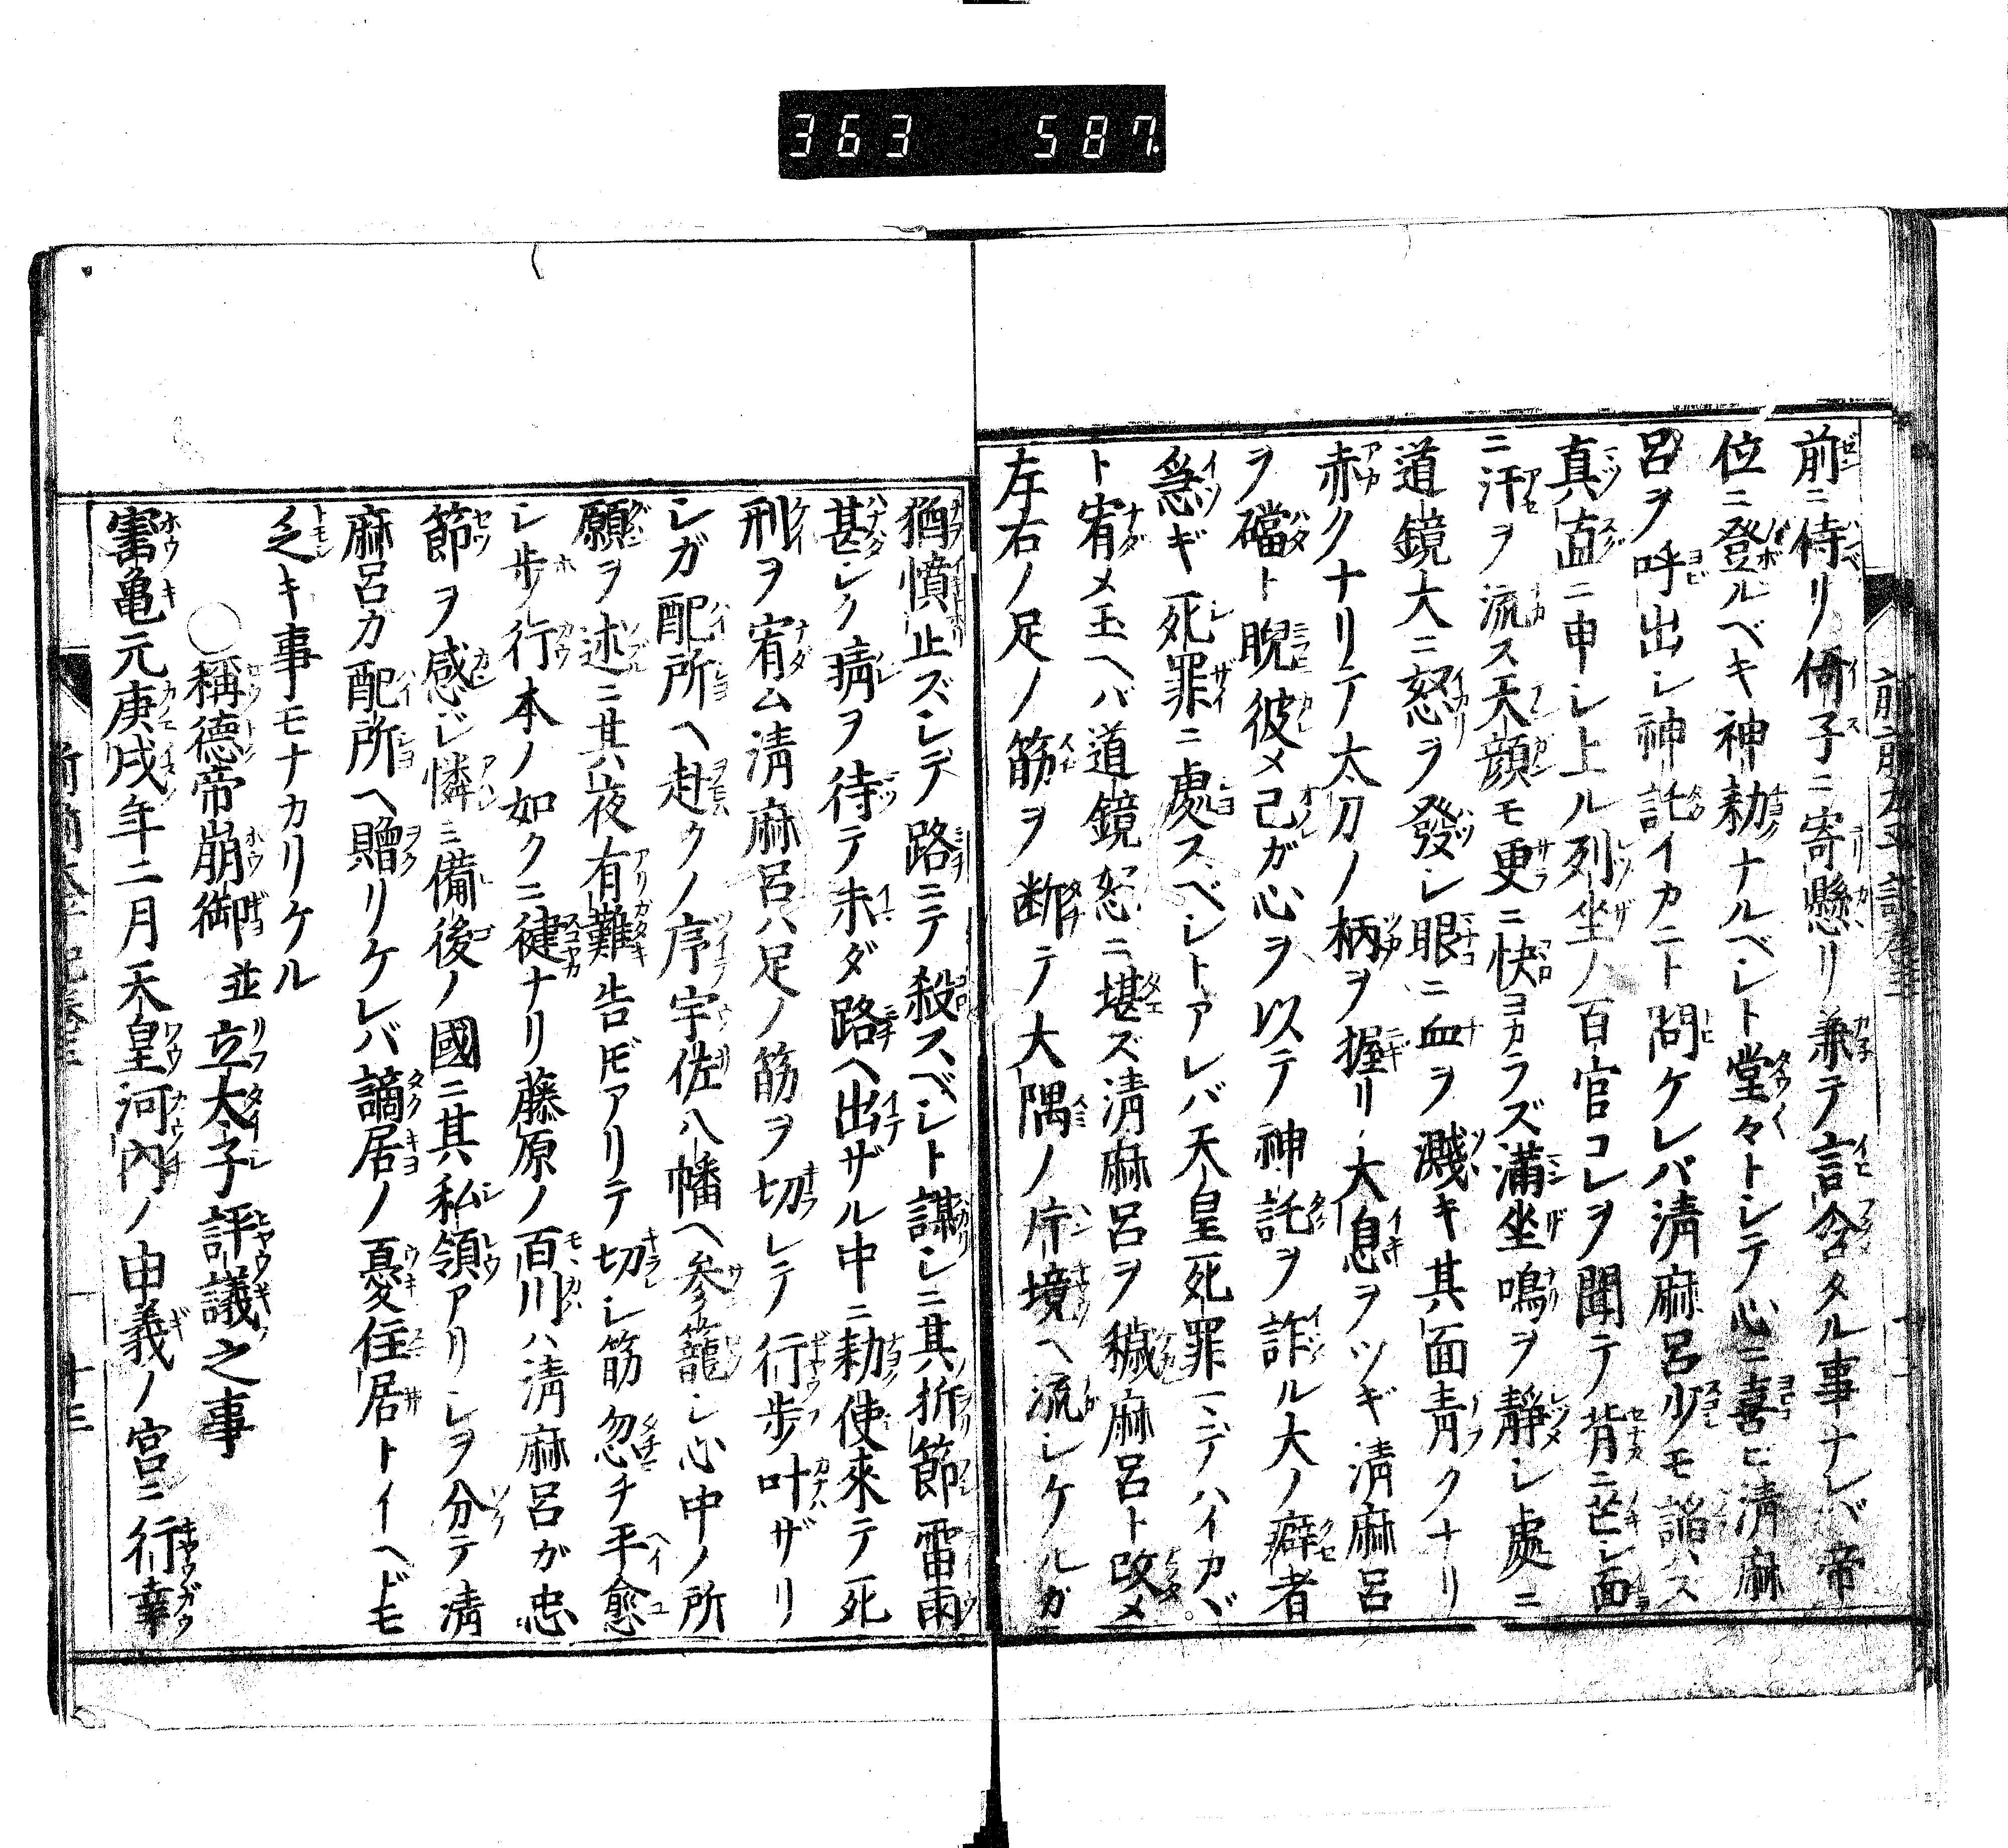 363 587.
前ニ侍リ倚子ニ寄懸リ兼テ言含タル事ナレバ帝
位ニ登ルベキ神勅ナルベシト堂々トシテ心ニ喜ビ清麻
呂ヲ呼出シ神託イカニト問ケレバ清麻呂少モ諂ハズ
真直ニ申シ上ル列坐ノ百官コレヲ聞テ背ニ芒シ面
ニ汗ヲ流ス天顔モ更ニ快ヨカラズ満坐鳴ヲ静シ處ニ
道鏡大ニ怒ヲ發シ眼ニ血ヲ濺キ其面青クナリ
赤クナリテ太刀ノ柄ヲ握リ大息ヲツギ清麻呂
ヲ礑ト睨彼メ己ガ心ヲ以テ神託ヲ詐ル大ノ癖者
急ギ死罪ニ處スベシトアレバ天皇死罪ニテハイカヾ
ト宥メ玉ヘバ道鏡怒ニ堪ズ清麻呂ヲ穢麻呂ト改メ
左右ノ足ノ筋ヲ断テ大隅ノ片境ヘ流シケルガ
猶憤止ズシテ路ニテ殺スベシト謀シニ其折節雷雨
甚シク晴ヲ待テ未ダ路ヘ出ザル中ニ勅使來テ死
刑ヲ宥ム清麻呂ハ足ノ筋ヲ切レテ行歩叶ザリ
シガ配所ヘ赴クノ序宇佐八幡ヘ参籠シ心中ノ所
願ヲ述ニ其夜有難告ドモアリテ切レシ筋忽チ平愈
シ歩行本ノ如クニ健ナリ藤原ノ百川ハ清麻呂ガ忠
節ヲ感ジ憐ミ備後ノ國ニ其私領アリシヲ分テ清
麻呂カ配所ヘ贈リケレバ謫居ノ憂住居トイヘドモ
乏キ事モナカリケル
○稱徳帝崩御並立太子評議之事
寶亀元庚戌年二月天皇河内ノ由義ノ宮ニ行幸